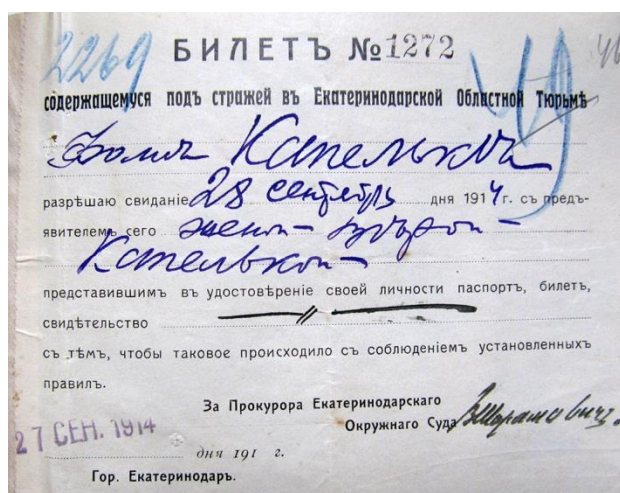 2269
БИЛЕТЪ №1272
содержащемуся подъ стражей въ Екатеринодарской Областной Тюрьмѣ
разрѣшаю свиданіе 28 сентября дня 1914 г. съ предъ-
явителемъ сего женой
представившимъ въ удостовѣреніе своей личности паспортъ, билетъ,
свидѣтельство
съ тѣмъ, чтобы таковое происходило съ соблюденіемъ установленныхъ
правилъ.
За Прокурора Екатеринодарскаго
Окружнаго Суда
27 СЕН. 1914
дня 191 г.
Гор. Екатеринодаръ.